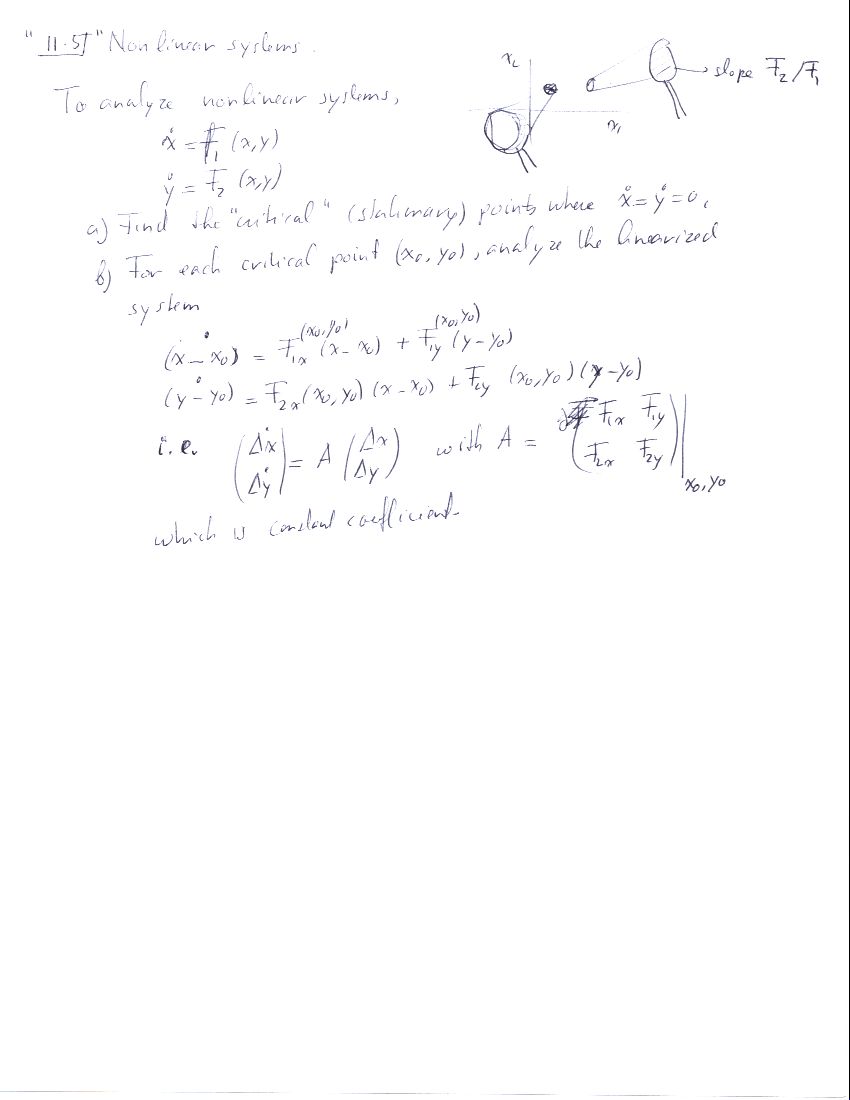 "11.5" Nonlinear systems.
x₂
x₁
slope F₂/F₁
To analyze nonlinear systems,
ẋ = F₁ (x,y)
ẏ = F₂ (x,y)
a) Find the "critical" (stationary) points where ẋ = ẏ = 0.
b) For each critical point (x₀, y₀), analyze the linearized
system
(x − x₀)˙ = F₁ₓ(x₀,y₀) (x − x₀) + F₁ᵧ(x₀,y₀) (y − y₀)
(y − y₀)˙ = F₂ₓ (x₀, y₀) (x − x₀) + F₂ᵧ (x₀, y₀) (y − y₀)
i.e. (Δẋ Δẏ) = A (Δx Δy) with A = (F₁ₓ F₁ᵧ F₂ₓ F₂ᵧ)|x₀, y₀
which is constant coefficient.